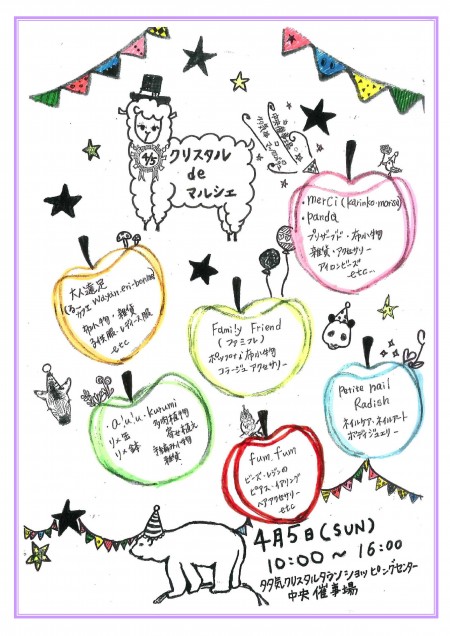 4/5
クリスタル
de
マルシェ
・merci (karinko-morisa)
・panda
プリザーブド・布小物
雑貨・アクセサリー
アイロンビーズ
etc…
大人遠足
布小物・雑貨
子供服・レディース服
etc
Family Friend
(ファミフレ)
コラージュアクセサリー
・a'u'u.kurumi
リメ缶
リメ鉢
多肉植物
寄せ植え
雑貨
Petite nail
Radish
ネイルケア・ネイルアート
ボディジュエリー
fum fum
ビーズ・レジンの
ピアス・イアリング
ヘアアクセサリー
etc
4月5日(SUN)
10:00〜16:00
多気クリスタルタウンショッピングセンター
中央催事場